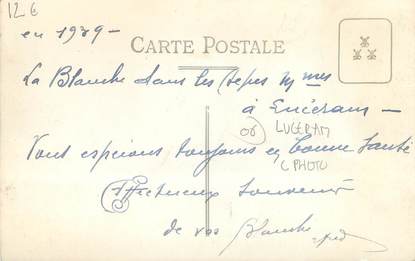 12€
en 1939 -
CARTE POSTALE
La Blanche dans les Alpes Mmes
à Lucéram -
06
LUCERAM
C PHOTO
Vous espérons toujours en bonne santé
Affectueux Souvenir
de vos Blanche